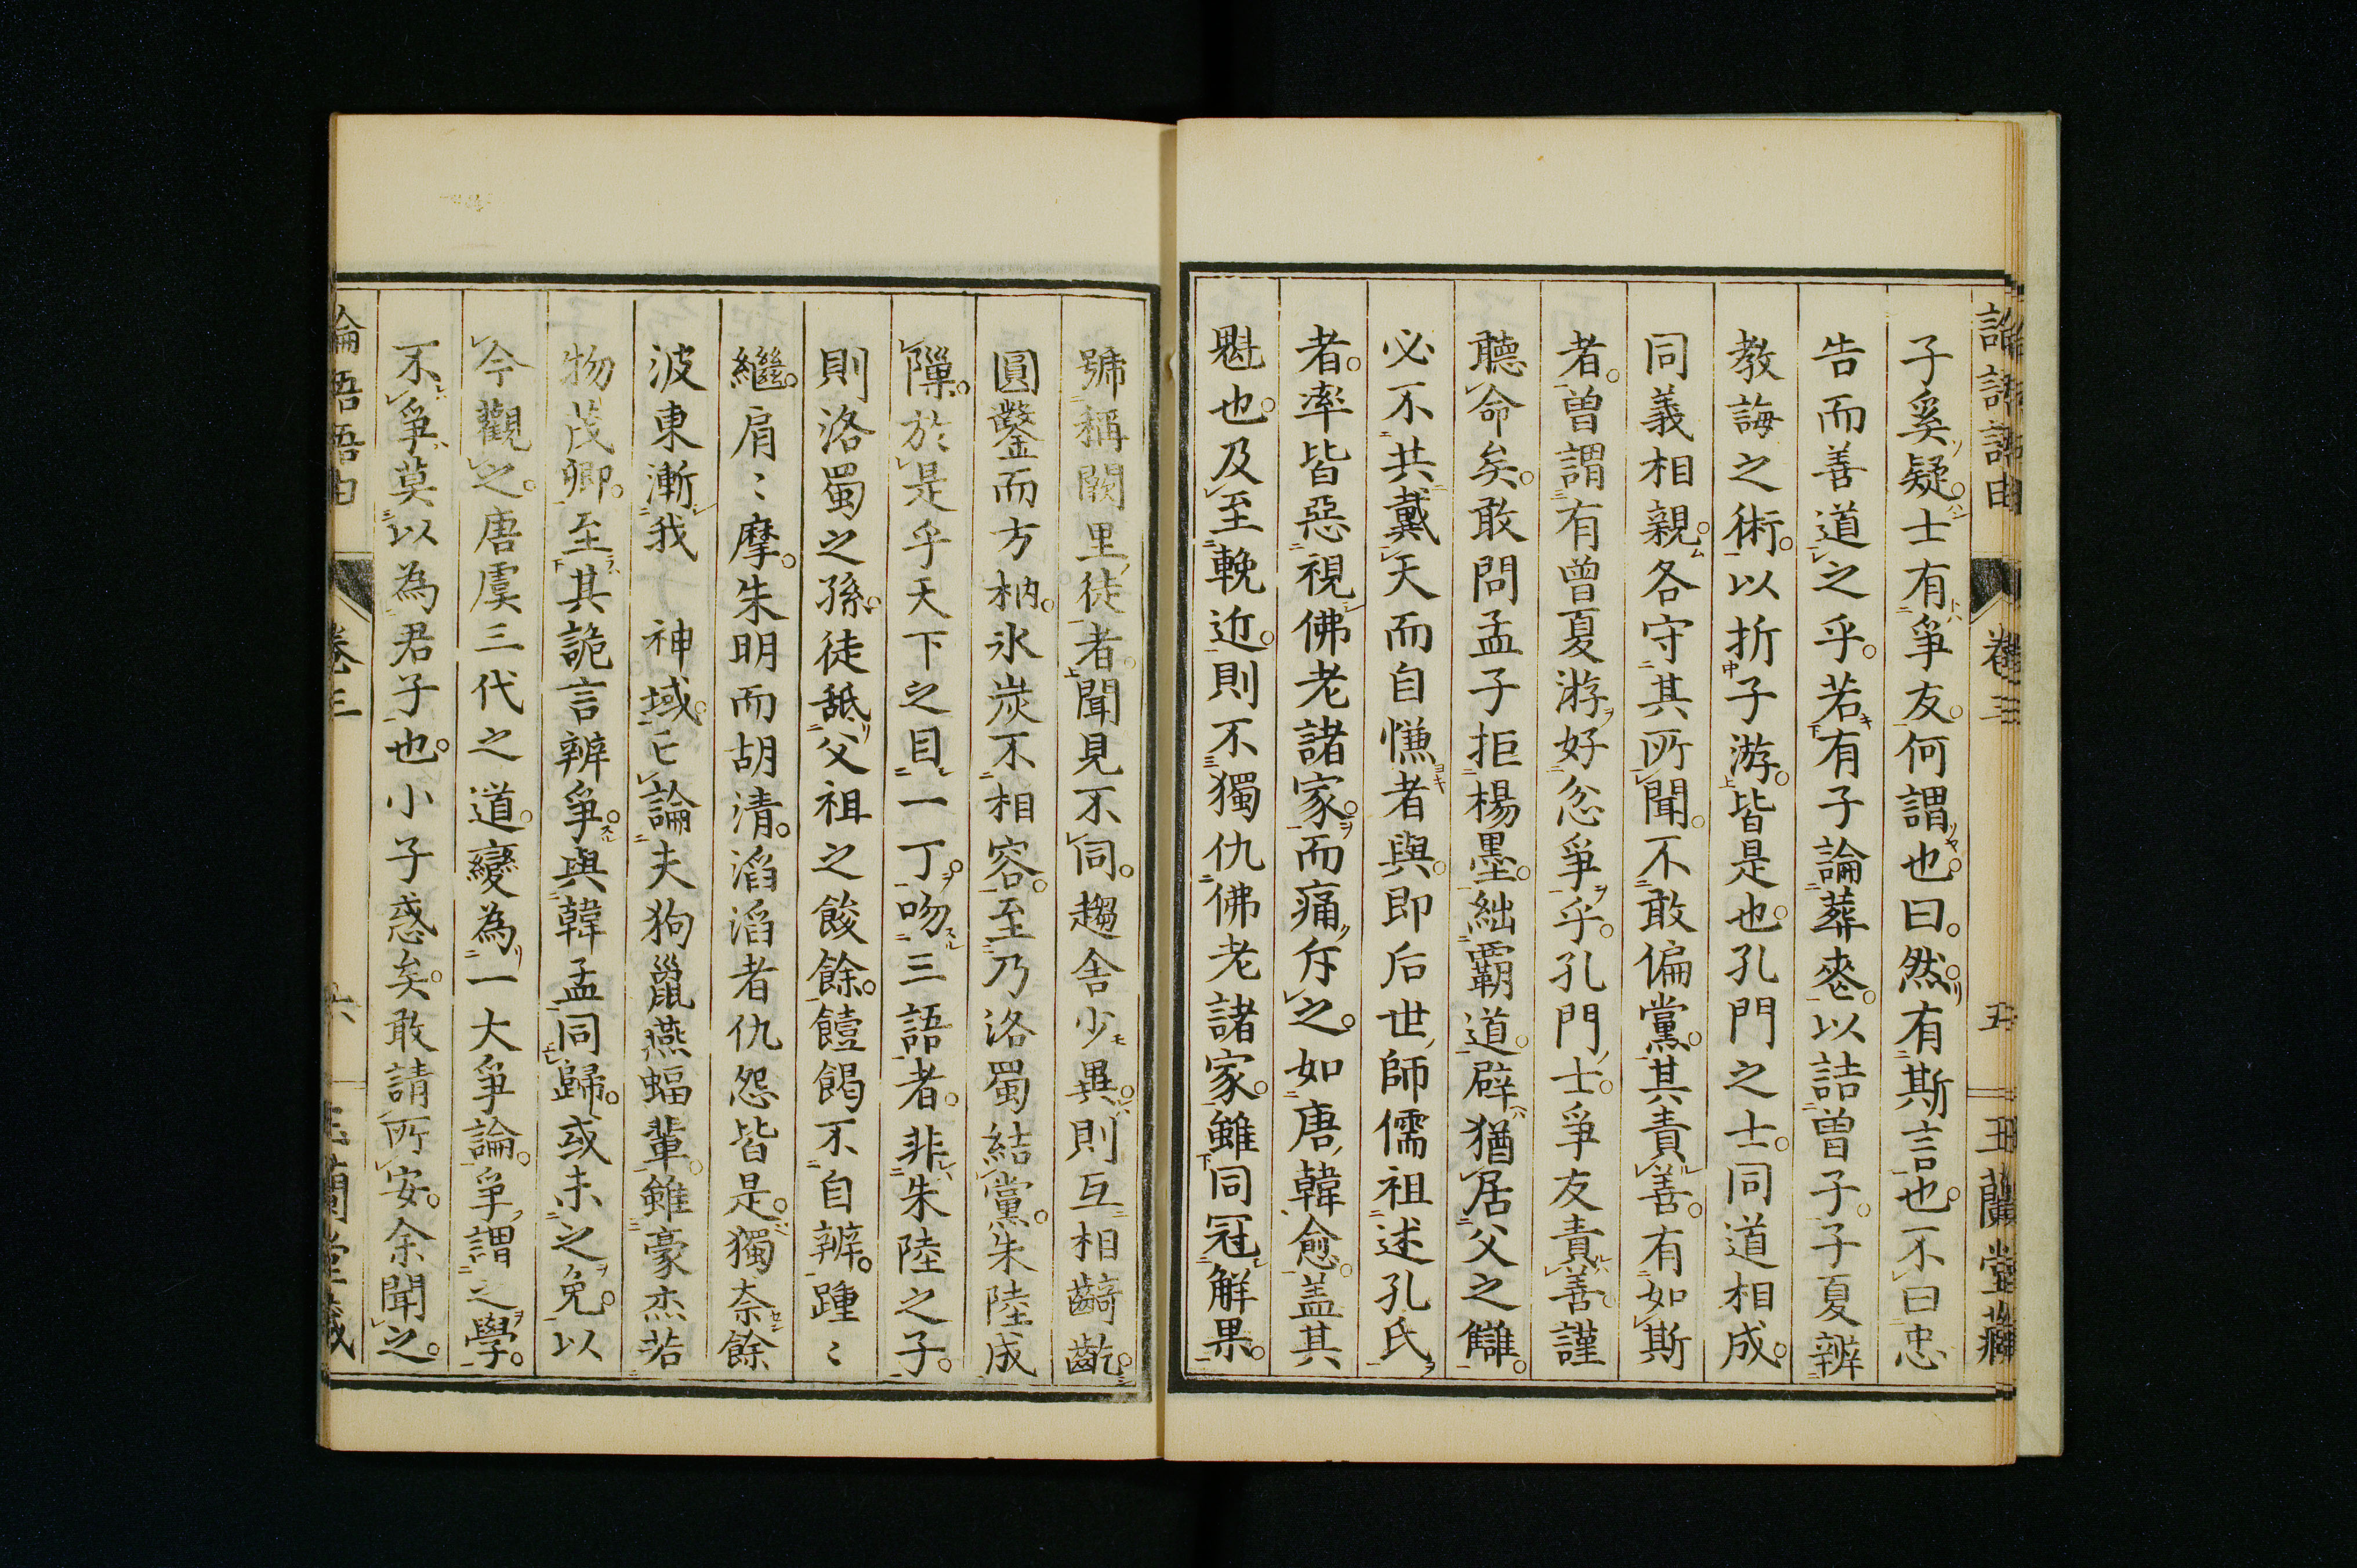 論語語由 卷三 五 玉蘭堂藏
子奚疑。士有爭友。何謂也。曰。然。有斯言也。不曰忠
告而善道之乎。若有子論葬喪。以詰曾子。子夏辨
教誨之術。以折子游。皆是也。孔門之士。同道相成。
同義相親。各守其所聞。不敢偏黨。其責善。有如斯
者。曾謂有曾夏游好忿爭乎。孔門士。爭友責善。謹
聽命矣。敢問孟子拒楊墨。絀霸道。辟猶居父之讎。
必不共戴天而自慊者與。即后世師儒祖述孔氏
者。率皆惡視佛老諸家。而痛斥之。如唐韓愈。蓋其
魁也。及至輓近。則不獨仇佛老諸家。雖同冠解果。
號稱闕里徒者。聞見不同。趨舍少異。則互相齮齕。
圓鑿而方枘。氷炭不相容。至乃洛蜀結黨。朱陸成
隟。於是乎天下之目一丁。吻三語者。非朱陸之子。
則洛蜀之孫。徒舐父祖之餕餘。饐餲不自辨。踵〻
繼。肩〻摩。朱明而胡清。滔滔者仇怨皆是。獨奈餘
波東漸我 神域。亡論夫狗鼡燕蝠輩。雖豪杰若
物茂卿。至其詭言辨爭。與韓孟同歸。或未之免。以
今觀之。唐虞三代之道。變為一大爭論。爭謂之學。
不爭莫以為君子也。小子惑矣。敢請所安。余聞之。
論語語由 卷三 六 玉蘭堂藏